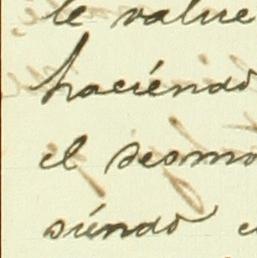 te value
haciéndo
el desmo
siéndo e